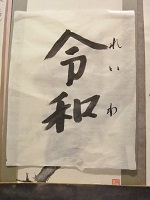 令和
れいわ